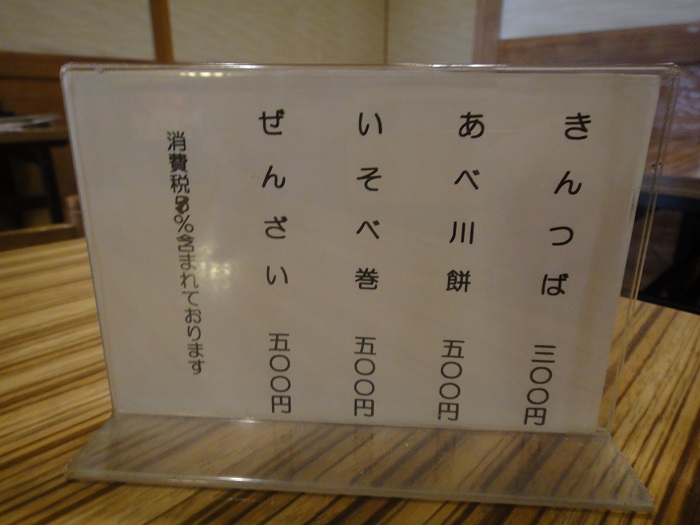 きんつば 三〇〇円
あべ川餅 五〇〇円
いそべ巻 五〇〇円
ぜんざい 五〇〇円
消費税%含まれております